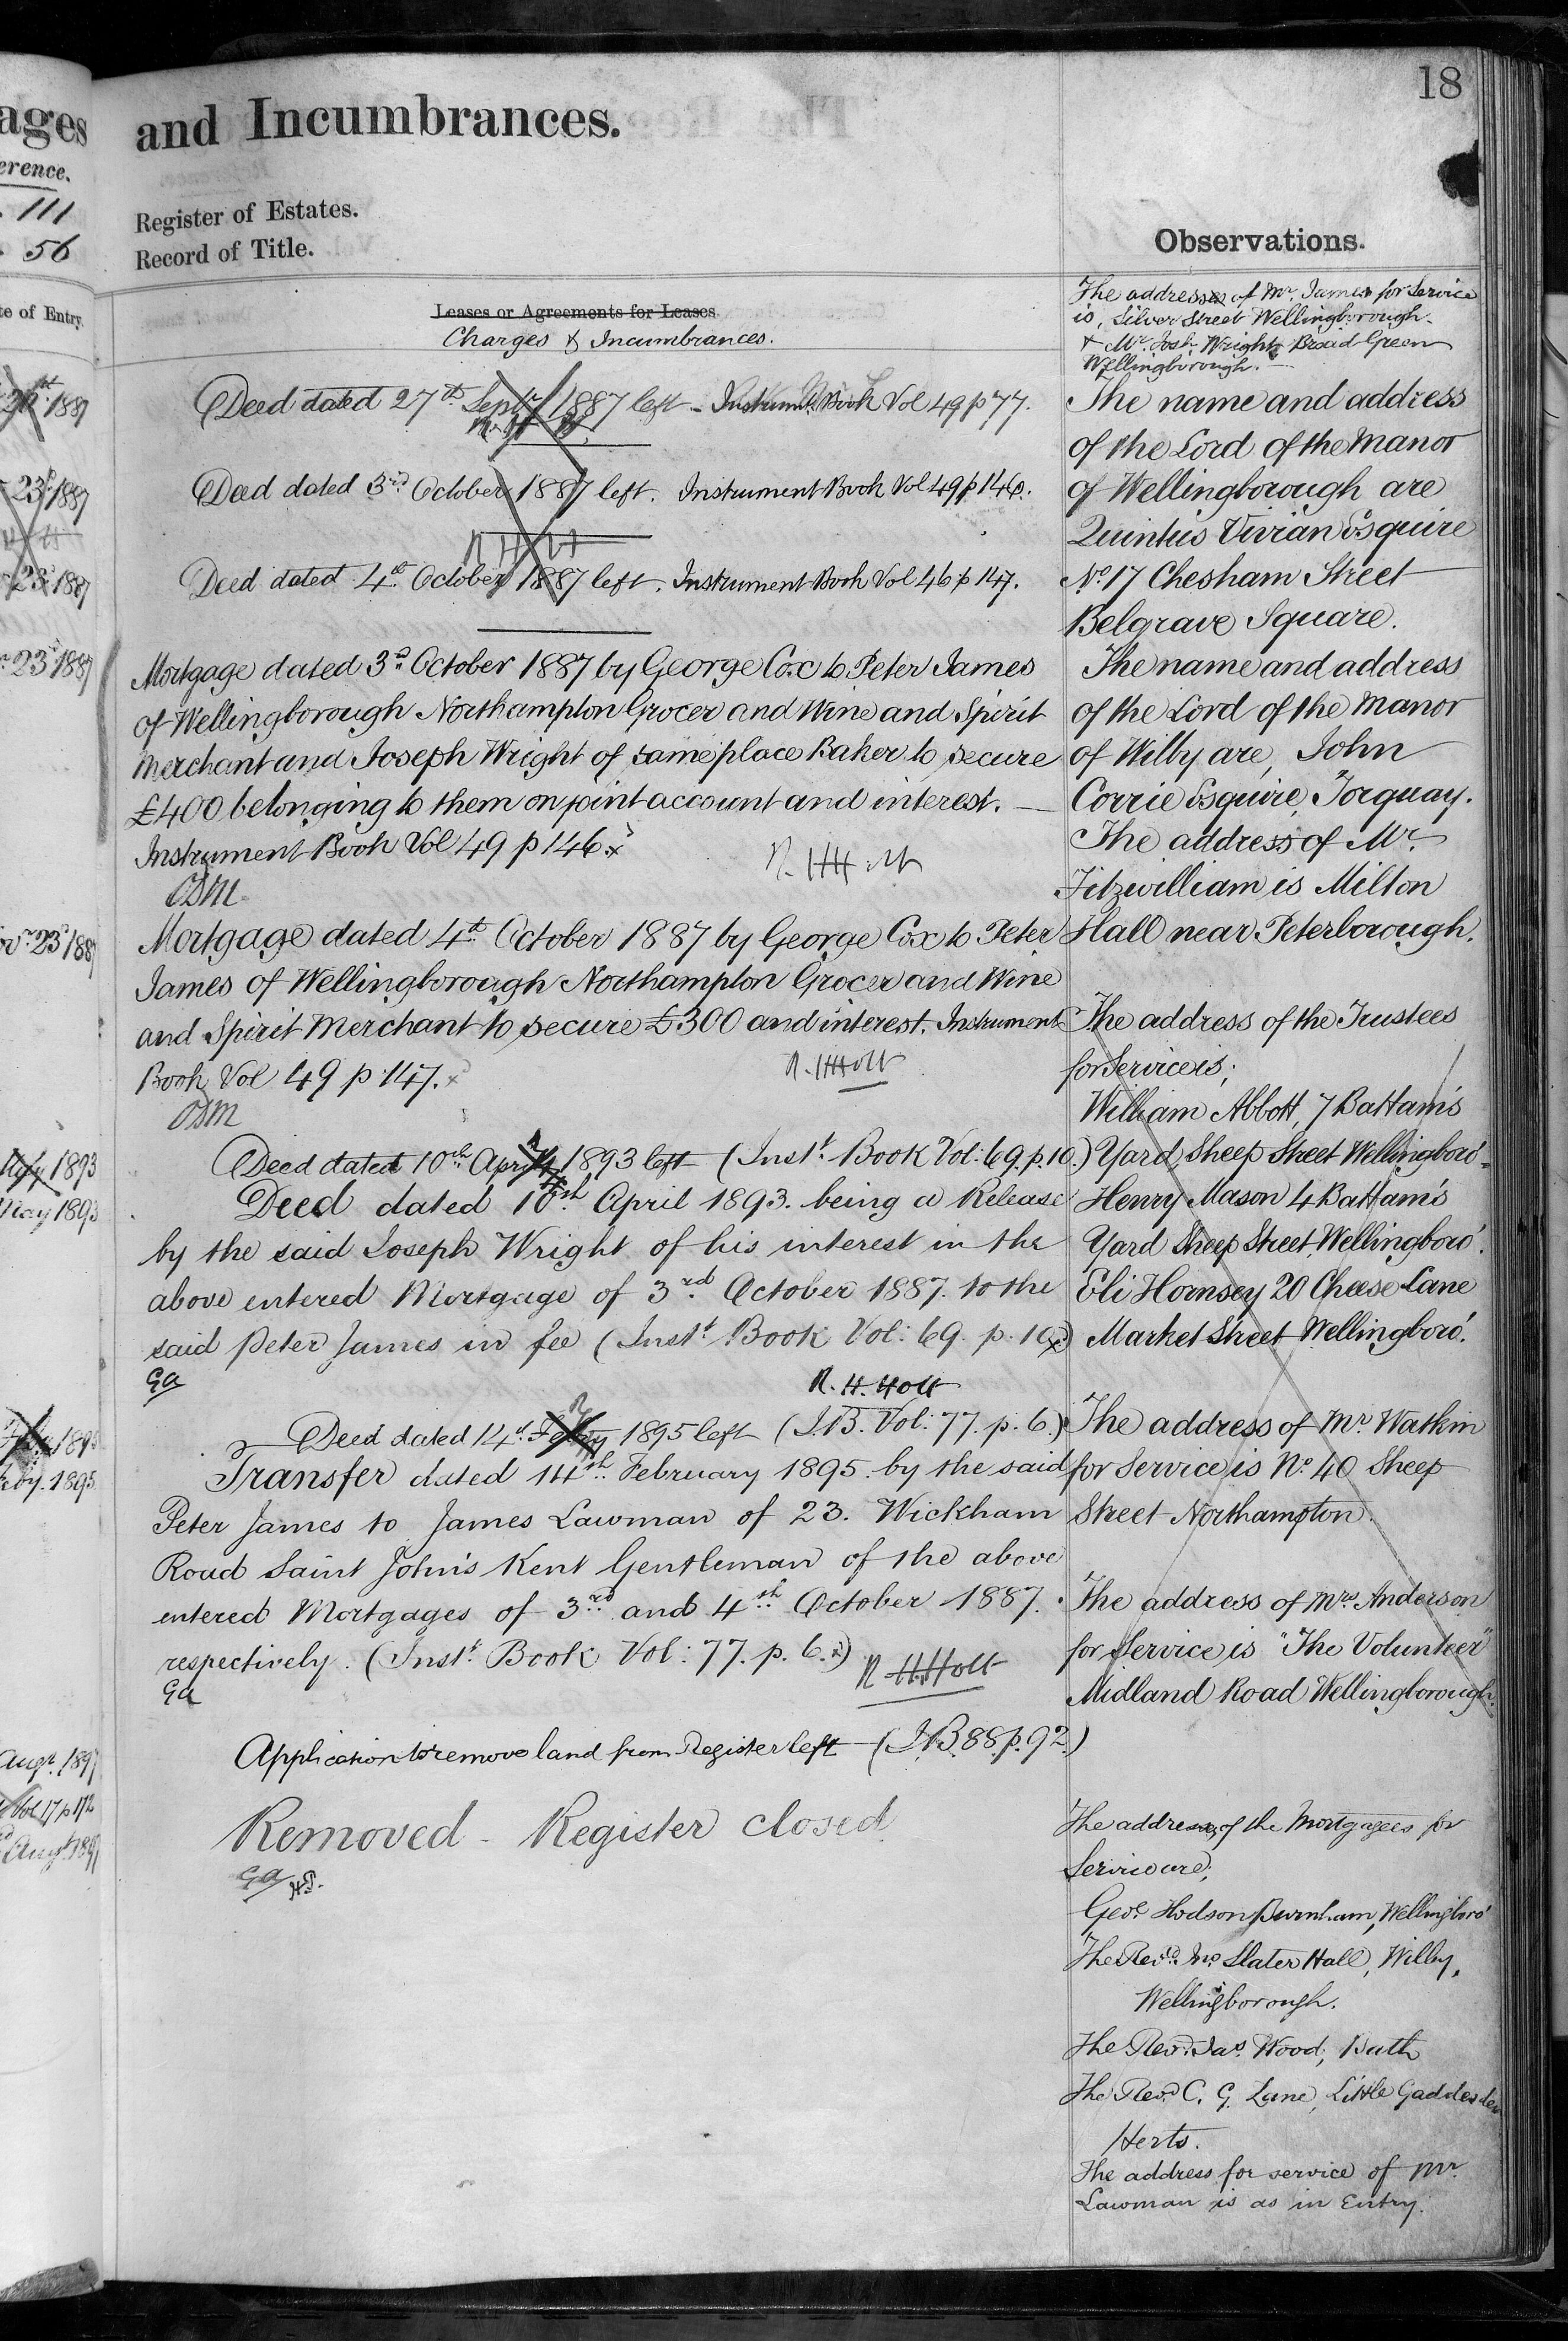 18
ages
erence.
111
56
te of Entry.
and Incumbrances.
Register of Estates.
Record of Title.
Observations.
Leases or Agreements for Leases
Charges & Incumbrances.
Deed dated 27th Septr 1887 left - Instrumt Book Vol 49 p 77.
1887
Deed dated 3rd October 1887 left. Instrument Book Vol 49 p 146.
23d 1887
Deed dated 4th October 1887 left. Instrument Book Vol 46 p 147.
23d 1887
23d 1887
Mortgage dated 3d October 1887 by George Cox to Peter James
of Wellingborough Northampton Grocer and Wine and Spirit
Merchant and Joseph Wright of same place Baker to secure
£400 belonging to them on joint account and interest. —
Instrument Book Vol 49 p 146. x
R. H Holt
OSM
ovr 23d 1887
Mortgage dated 4th October 1887 by George Cox to Peter
James of Wellingborough Northampton Grocer and Wine
and Spirit Merchant to secure £300 and interest. Instrument
Book Vol 49 p 147. x
R. H Holt
OSM
1893
Deed dated 10th April 1893 left (Instt. Book Vol: 69. p. 10.)
May 1893
Deed dated 10th April 1893. being a Release
by the said Joseph Wright of his interest in the
above entered Mortgage of 3rd October 1887. to the
said Peter James in fee (Instt. Book Vol: 69. p. 10 x)
Ga
R. H. Holt
1895
Deed dated 14th Feby 1895 left (I.B. Vol: 77. p. 6.)
eby. 1895
Transfer dated 14th February 1895. by the said
Peter James to James Lawman of 23. Wickham
Road Saint John's Kent Gentleman of the above
entered Mortgages of 3rd and 4th October 1887.
respectively. (Instt. Book Vol: 77. p. 6. x)
R H. Holt
Ga
Augt. 1897
Application to remove land from Register left (I.B. 88. p. 92.)
Vol 17 p 172
Augt 1897
Removed - Register closed
Ga
The address of Mr. James for Service
is, Silver Street Wellingborough
& Mr. Josh. Wright Broad Green
Wellingborough. —
The name and address
of the Lord of the Manor
of Wellingborough are
Quintus Vivian Esquire
No. 17 Chesham Street
Belgrave Square.
The name and address
of the Lord of the Manor
of Wilby are, John
Corrie Esquire, Torquay.
The address of Mr.
Fitzwilliam is Milton
Hall near Peterborough.
The address of the Trustees
for Service is;
William Abbott, 7 Battam's
Yard, Sheep Street Wellingboro'
Henry Mason 4 Battam's
Yard Sheep Street, Wellingboro'.
Eli Hornsey 20 Cheese Lane
Market Street Wellingboro'.
The address of Mr. Watkin
for Service is No. 40 Sheep
Street Northampton.
The address of Mrs Anderson
for Service is "The Volunteer"
Midland Road Wellingborough.
The address of the Mortgagees for
Service are;
Geoe. Hodson Burnham, Wellingboro'
The Revd. Jno. Slater Hall, Wilby,
Wellingborough.
The Revd. Jas. Wood, Bath
The Revd. C. G. Lane, Little Gaddesden
Herts.
The address for service of Mr.
Lawman is as in Entry.